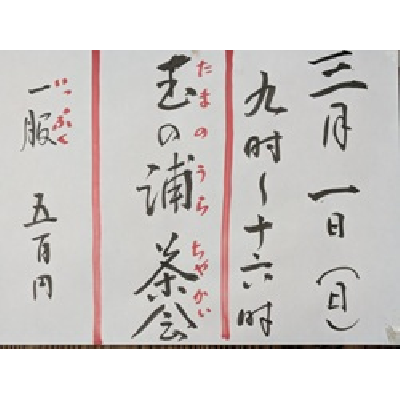 三月一日(日)
九时~十六时
たまのうら ちゃかい
玉の浦 茶会
いっぷく
一服 五百円